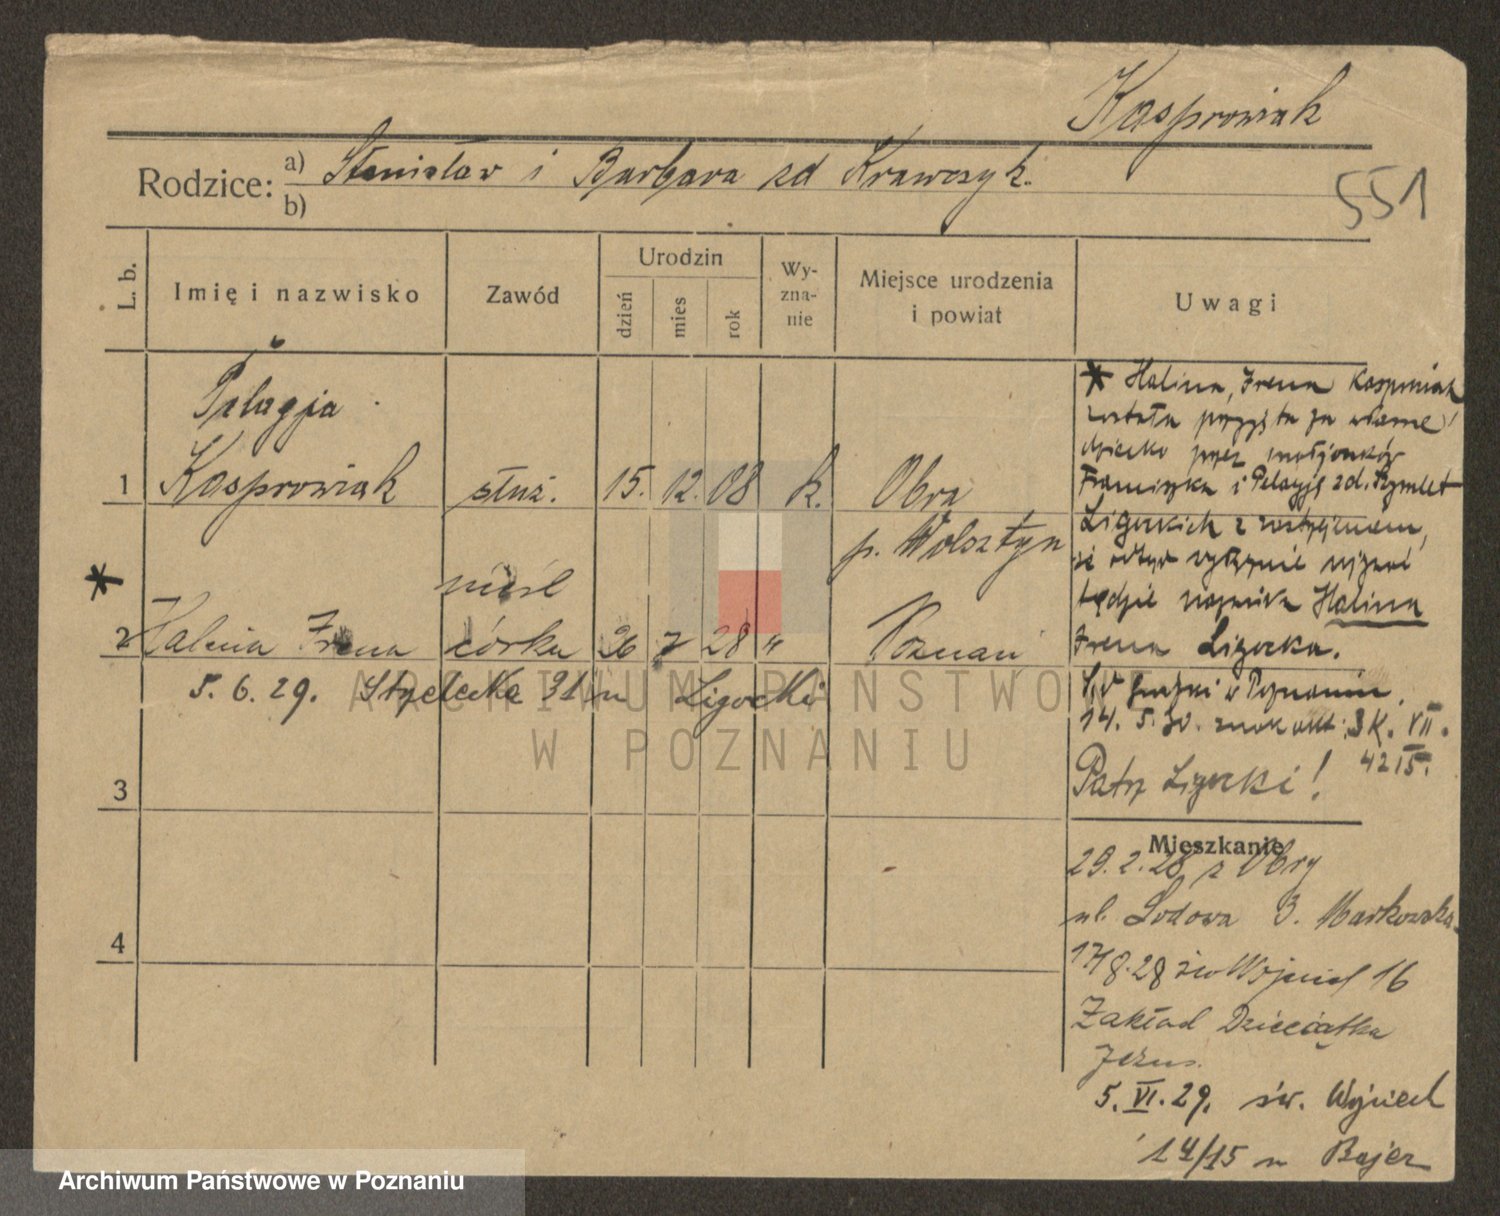 Kasprowiak
Rodzice: a) Stanisław i Barbara zd Krawczyk.
b)
551
L. b.
Imię i nazwisko
Zawód
Urodzin
dzień
mies
rok
Wy-
zna-
nie
Miejsce urodzenia
i powiat
Uwagi
Pelagja
1 Kasprowiak służ. 15. 12. 08 k. Obra
p. Wolsztyn
* nieśl
2 Halina Irena córka 26 7 28 " Poznań
5. 6. 29. Strzelecka 31 u Ligocki
3
4
* Halina, Irena Kasprowiak
została przyjęta za własne
dziecko przez małżonków
Franciszka i Pelagję zd. Szymlet
Ligockich z zastrzeżeniem,
że odtąd wyłącznie używać
będzie nazwiska Halina
Irena Ligocka.
Sąd Grodzki w Poznaniu
14. 5. 30. znak akt: 3 K. VII.
42 15.
Patrz Ligocki!
Mieszkanie
29. 2. 28 z Obry
ul. Lodowa 3. Markowska
17/8. 28 św Wojciech 16
Zakład Dzieciątka
Jezus.
5. VI. 29. św. Wojciech
14/15 u Bajer
ARCHIWUM PAŃSTWOWE
W POZNANIU
Archiwum Państwowe w Poznaniu